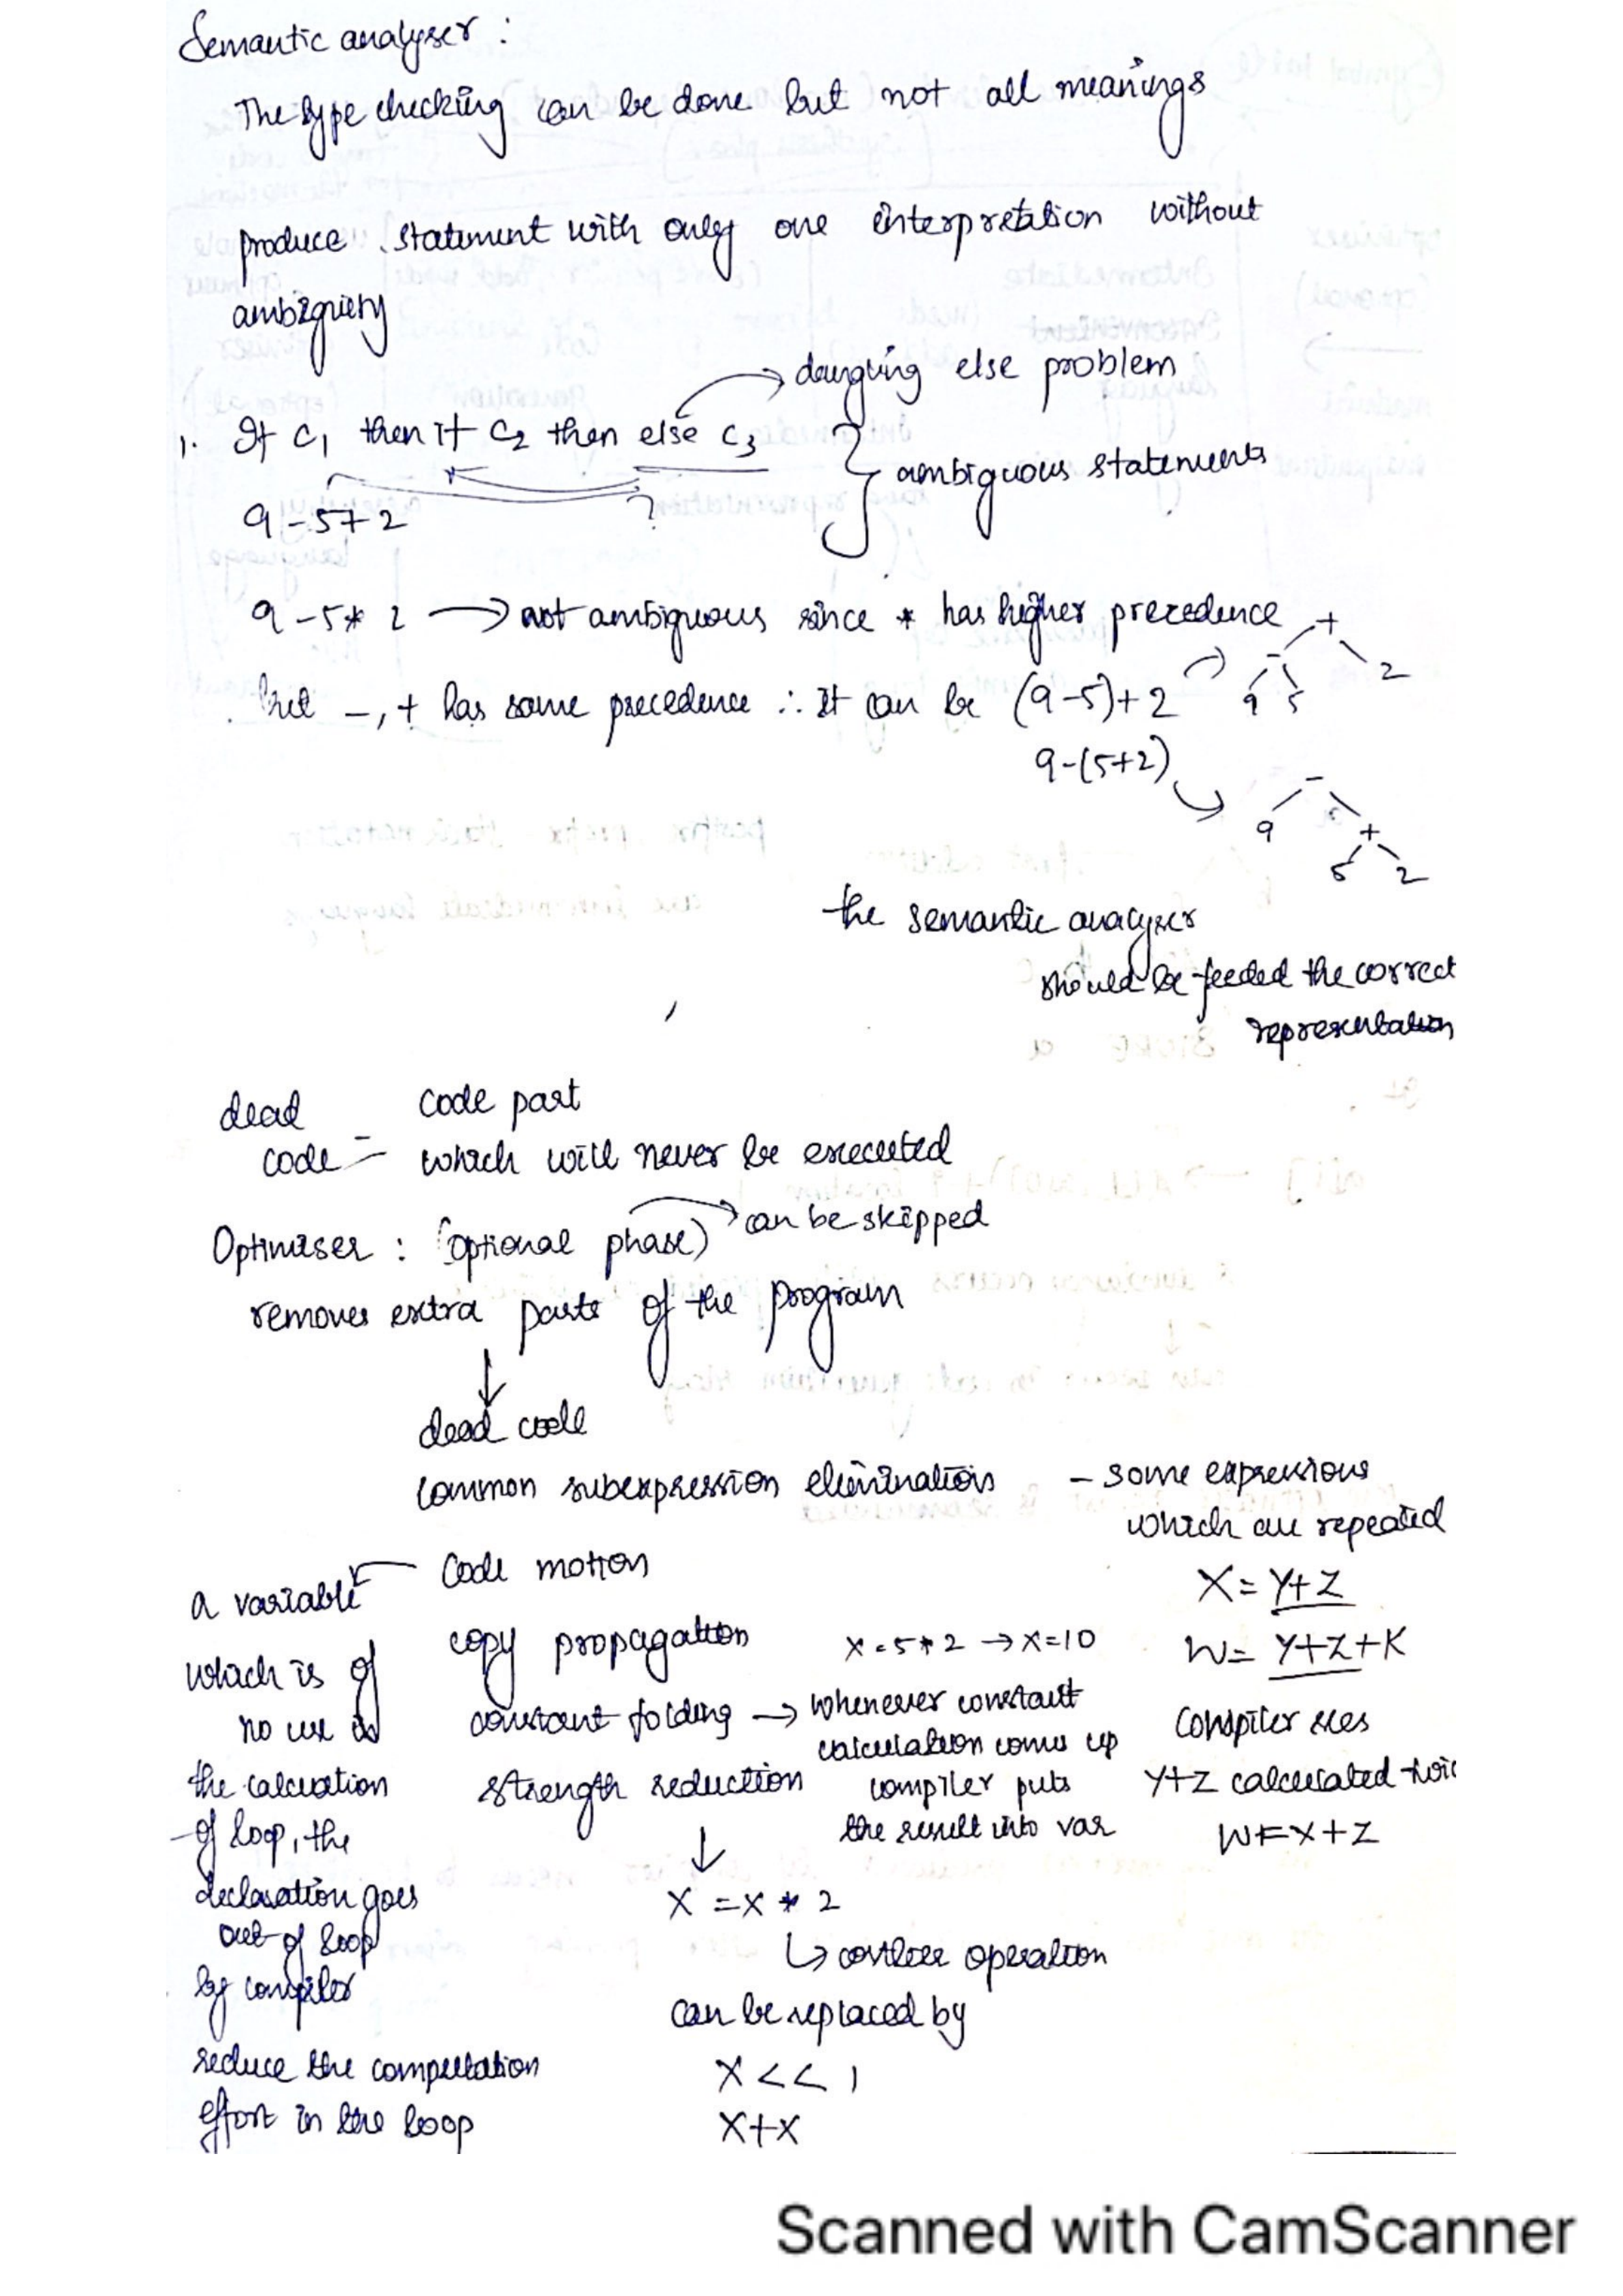 Semantic analyser :
The type checking can be done but not all meanings
produce statement with only one interpretation without
ambiguity
dangling else problem
1. If C1 then if C2 then else C3
ambiguous statements
?
9-5+2
9-5*2 → not ambiguous since * has higher precedence
but -, + has same precedence ∴ It can be (9-5)+2
+
- 2
9 5
9-(5+2)
-
9 +
5 2
the semantic analyser
should be feeded the correct
representation
dead code = code part
which will never be executed
Optimiser : (optional phase) → can be skipped
removes extra parts of the program
↓
dead code
common subexpression elimination - some expressions
which are repeated
X = Y+Z
W = Y+Z+K
Compiler sees
Y+Z calculated twic
W=X+Z
Code motion
a variable
which is of
no use is
the calcuation
of loop, the
declaration goes
out of loop
by compiler
reduce the computation
effort in the loop
copy propagation
X=5*2 → X=10
constant folding → whenever constant
calculation comes up
compiler puts
the result into var
strength reduction
↓
X = X * 2
↳ costlier operation
can be replaced by
X << 1
X+X
Scanned with CamScanner